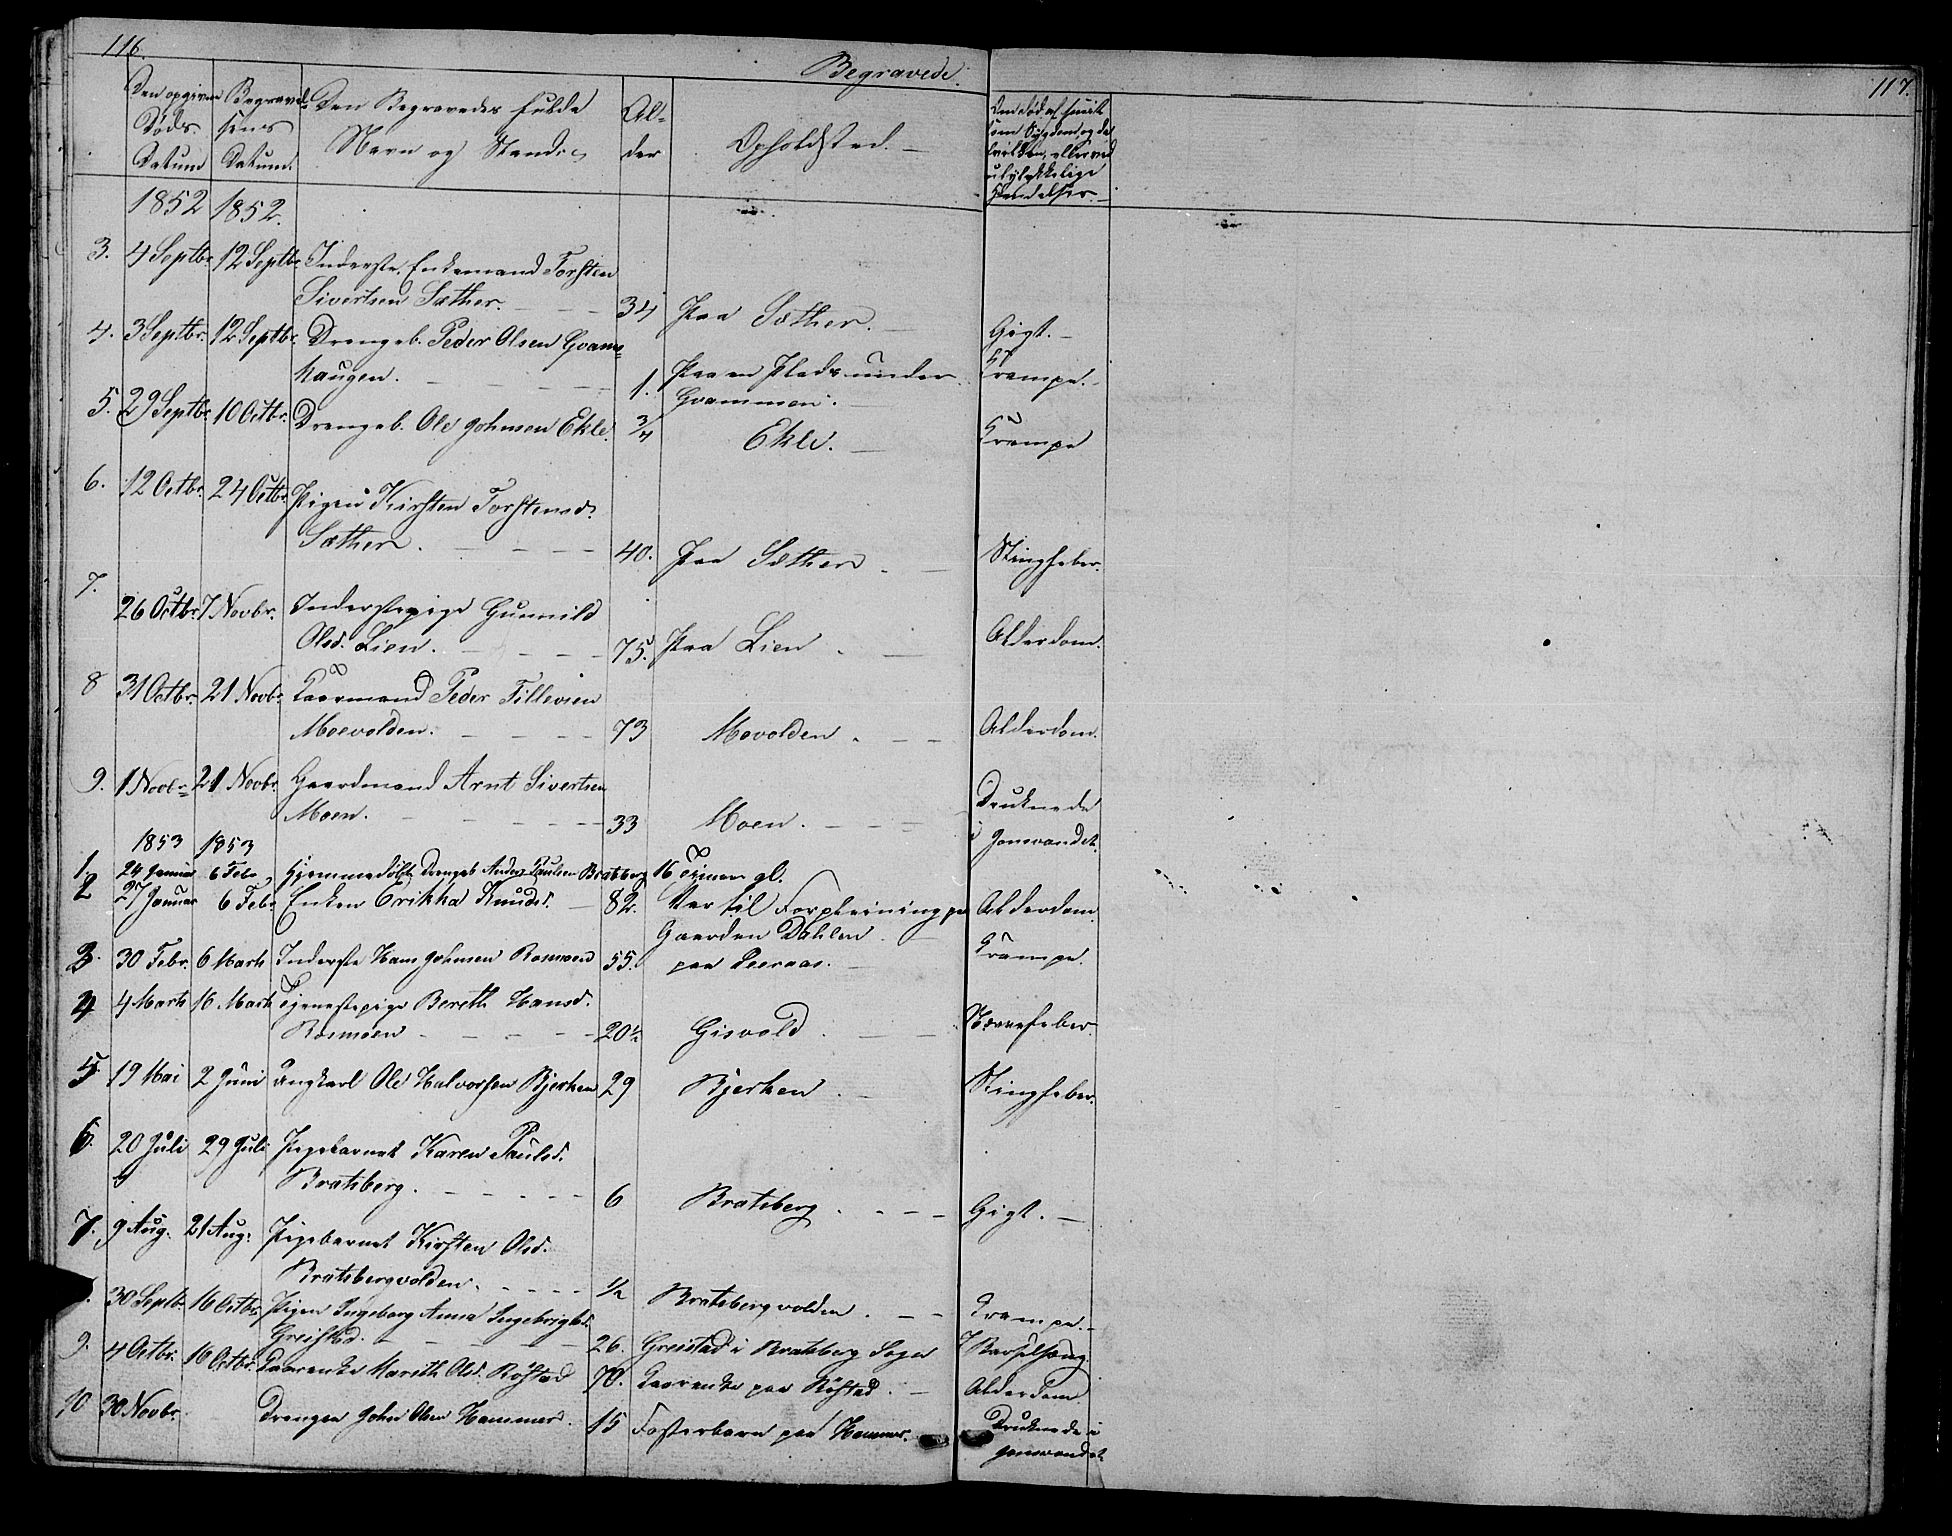 116.
Begravede.
117.
Den opgivne Døds Datum
Begravelsens Datum.
Den Begravedes fulde Navn og Stand
Alder
Opholdsted.
Om død af smitsom Sygdom og da hvilken, eller ved ulykkelige Hændelser.
1852 1852.
3. 4 Septbr. 12 Septbr. Inderste, Enkemand Torsten
Sivertsen Sæther. 34 Paa Sæther. Gigt.
4. 3 Septbr. 12 Septbr. Drengeb. Peder Olsen Gvams-
haugen. 1. Paa en Plads under Gvammen. Krampe.
5. 29 Septbr. 10 Octbr. Drengeb. Ole Johnsen Ekle. 3/4 Ekle. Krampe
6. 12 Octbr. 24 Octbr. Pigen Kirsten Torstensd.
Sæther. 40. Paa Sæther. Stingfeber.
7. 26 Octbr. 7 Novbr. Inderstepige Gunnild
Olsd. Lien. 75. Paa Lien. Alderdom.
8 31 Octbr. 21 Novbr. Kaarmand Peder Tillevien
Moevolden. 73 Movolden. Alderdom.
9. 1 Novbr. 21 Novbr. Gaardmand Arnt Sivertsen
Moen. 33 Moen. Druknede i Jonsvandet.
1853 1853
1. 24 Januar 6 Febr. Hjemmedøbt Drengeb. Anders Paulsen Bratsberg 16 Timer gl.
2 27 Januar 6 Febr. Enken Erikka Knudsd. 82. Var til Forpleining paa
Gaarden Dahlen. Alderdom.
3. 30 Febr. 6 Marts Inderste Hans Johnsen Rosmoen 55. paa Leeraas. Krampe.
4 4 Marts 16 Marts Tjenestepige Bereth Hansd.
Rosmoen 20½ Gisvold. Nervefeber.
5 19 Mai 2 Juni Ungkarl Ole Halvorsen Bjerken 29 Bjerken. Stingfeber.
6. 20 Juli 29 Juli Pigebarnet Karen Paulsd.
Bratsberg. 6 Bratsberg. Gigt.
7. 9 Aug. 21 Aug. Pigebarnet Kirsten Olsd.
Bratsbergvolden. ½ Bratsbergvolden. Krampe.
30 Septbr. 16 Octbr. Pigen Ingeborg Anna Ingebrigtsd.
Greistad. 26. Greistad i Bratsberg Sogn Barselseng.
9. 4 Octbr. 16 Octbr. Kaarenke Mareth Olsd. Røstad 70. Kaarenke paa Røstad. Alderdom
10 30 Novbr. Drengen John Olsen Hammer. 15 Fosterbarn paa Hammer. Druknede i
Jonsvandet